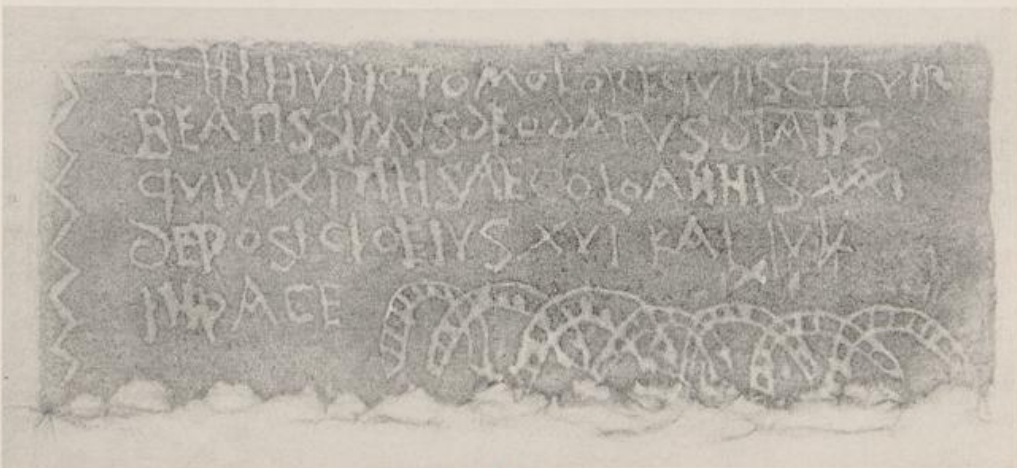 + IN HVNC TOMOLO REQVIISCIT VIR
BEATISSIMVS DEODATVS
QVI VIXIT IN H SAECOLO ANNIS
DEPOSICIO EIVS XVI KAL
IN PACE